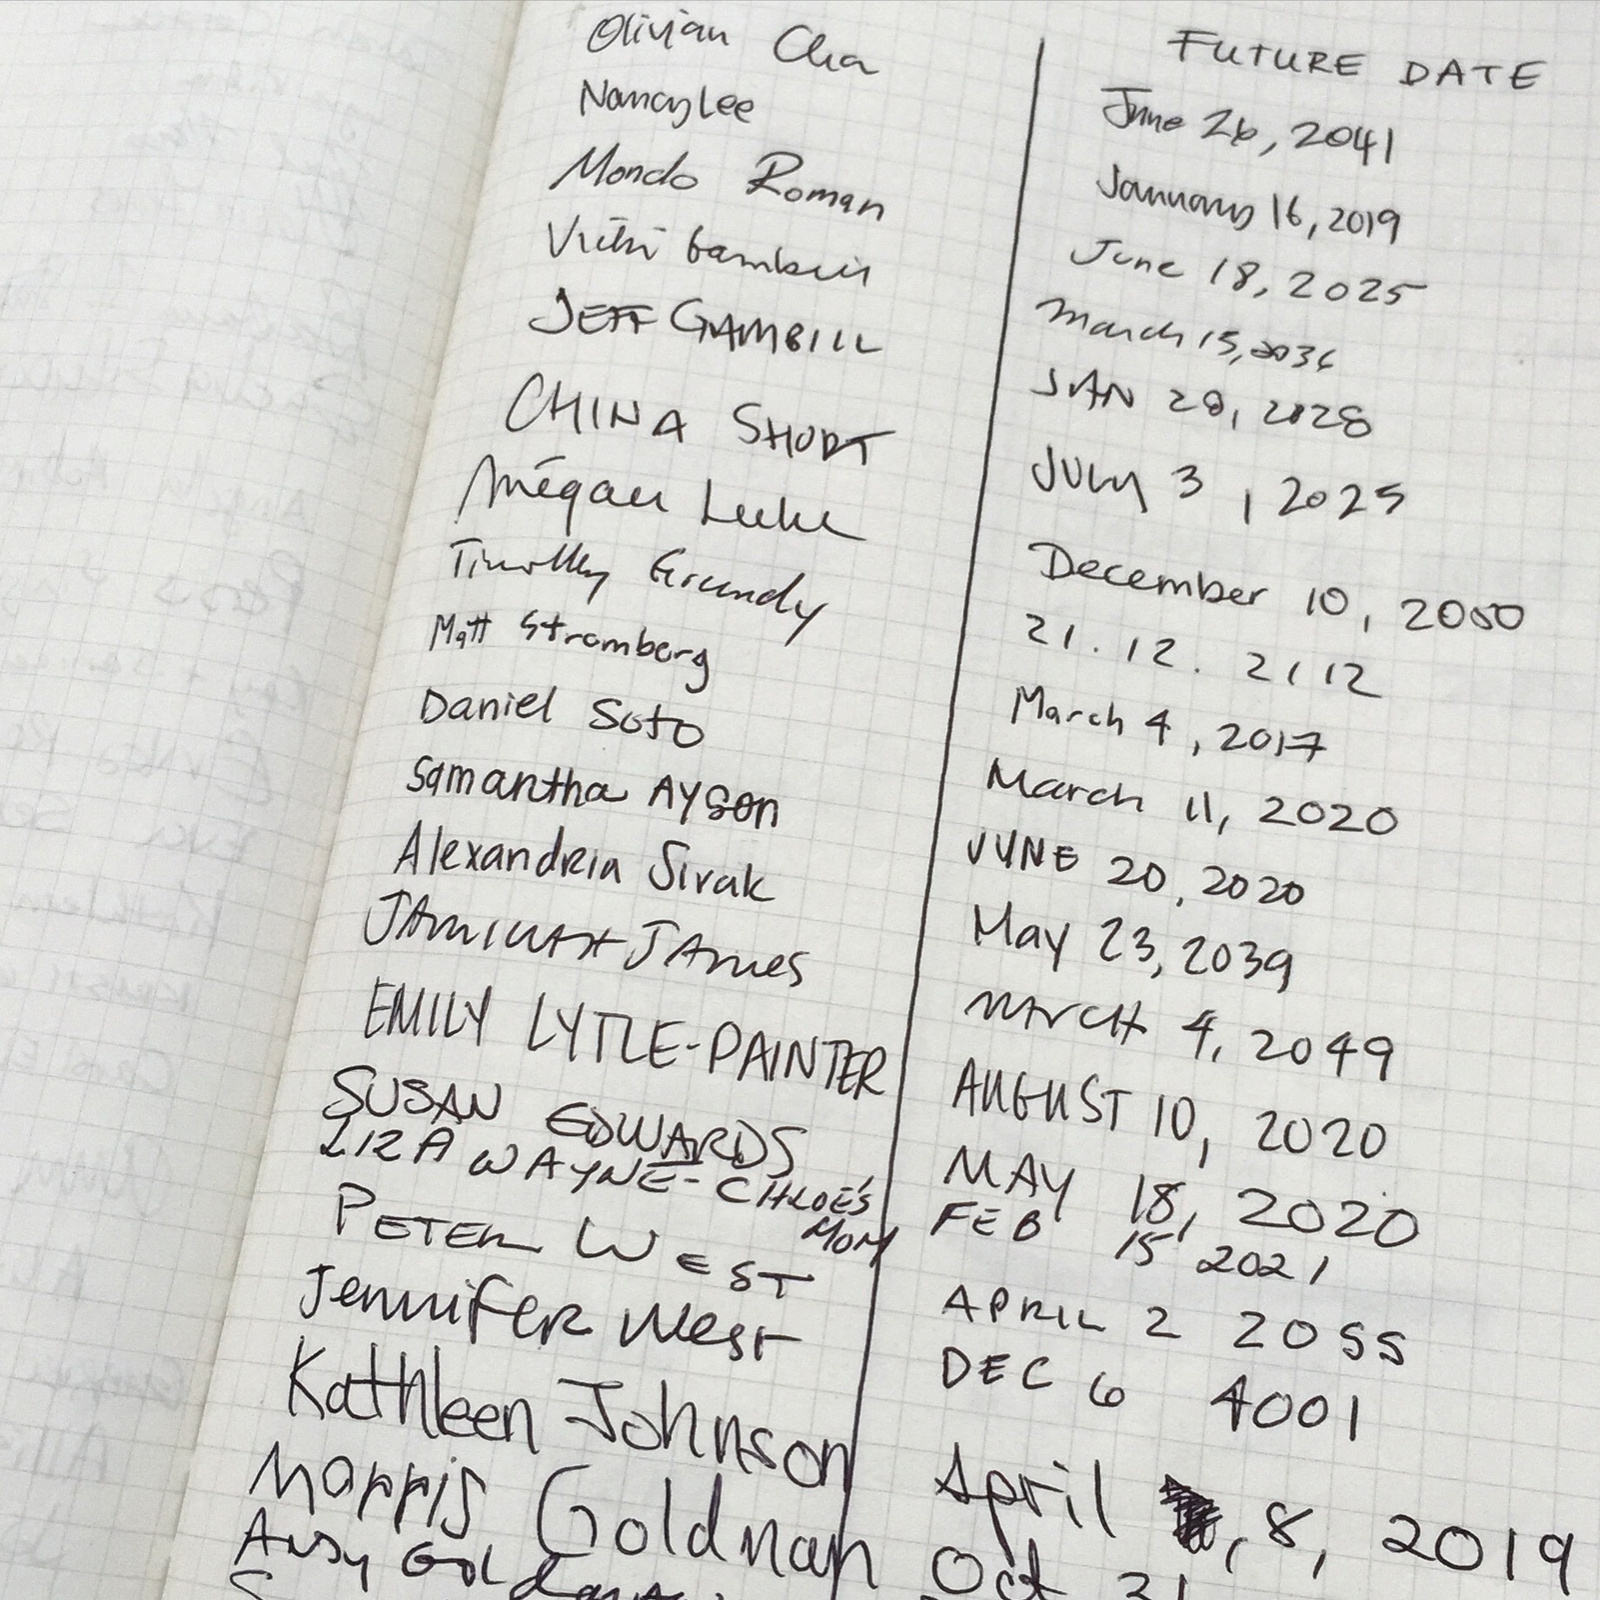 FUTURE DATE
Olivian Cha June 26, 2041
Nancy Lee January 16, 2019
Mondo Roman June 18, 2025
Vicki Gambill March 15, 2036
JEFF GAMBILL JAN 28, 2028
CHINA SHORT JULY 3, 2025
Megan Luke December 10, 2050
Timothy Grundy 21.12.2112
Matt Stromberg March 4, 2017
Daniel Soto March 11, 2020
Samantha AYSON JUNE 20, 2020
Alexandria Sivak May 23, 2039
JAMES MARCH 4, 2049
EMILY LYTLE-PAINTER AUGUST 10, 2020
SUSAN EDWARDS MAY 18, 2020
LIZA WAYNE-CHLOE'S MOM FEB 15 2021
PETER WEST APRIL 2 2055
Jennifer West DEC 6 4001
Kathleen Johnson April , 8, 2019
Morris Goldman Oct 31
ANDY